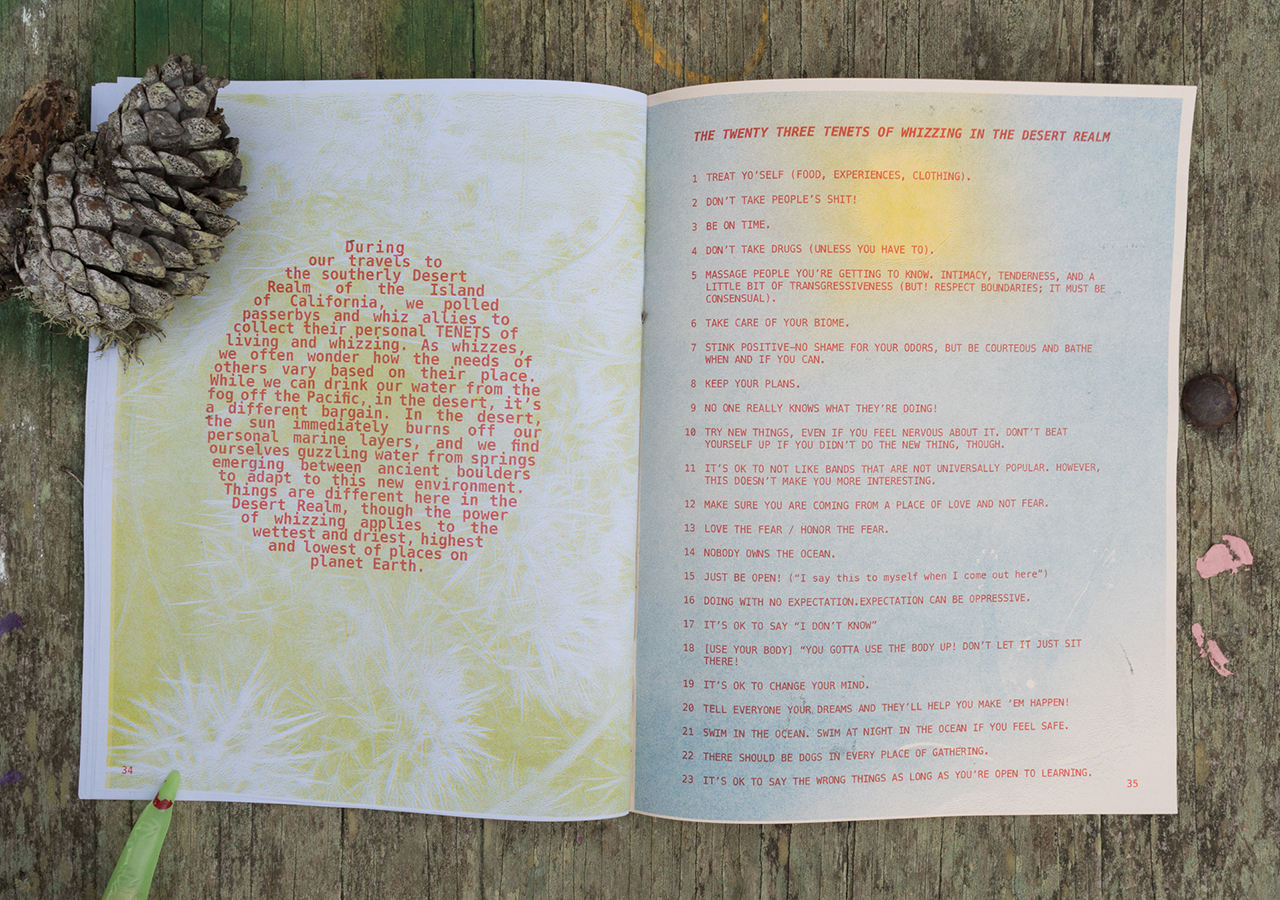 During
our travels to
the southerly Desert
Realm of the Island
of California, we polled
passerbys and whiz allies to
collect their personal TENETS of
living and whizzing. As whizzes,
we often wonder how the needs of
others vary based on their place.
While we can drink our water from the
fog off the Pacific, in the desert, it's
a different bargain. In the desert,
the sun immediately burns off our
personal marine layers, and we find
ourselves guzzling water from springs
emerging between ancient boulders
to adapt to this new environment.
Things are different here in the
Desert Realm, though the power
of whizzing applies to the
wettest and driest, highest
and lowest of places on
planet Earth.
34
THE TWENTY THREE TENETS OF WHIZZING IN THE DESERT REALM
1 TREAT YO'SELF (FOOD, EXPERIENCES, CLOTHING).
2 DON'T TAKE PEOPLE'S SHIT!
3 BE ON TIME.
4 DON'T TAKE DRUGS (UNLESS YOU HAVE TO).
5 MASSAGE PEOPLE YOU'RE GETTING TO KNOW. INTIMACY, TENDERNESS, AND A
LITTLE BIT OF TRANSGRESSIVENESS (BUT! RESPECT BOUNDARIES; IT MUST BE
CONSENSUAL).
6 TAKE CARE OF YOUR BIOME.
7 STINK POSITIVE—NO SHAME FOR YOUR ODORS, BUT BE COURTEOUS AND BATHE
WHEN AND IF YOU CAN.
8 KEEP YOUR PLANS.
9 NO ONE REALLY KNOWS WHAT THEY'RE DOING!
10 TRY NEW THINGS, EVEN IF YOU FEEL NERVOUS ABOUT IT. DONT'T BEAT
YOURSELF UP IF YOU DIDN'T DO THE NEW THING, THOUGH.
11 IT'S OK TO NOT LIKE BANDS THAT ARE NOT UNIVERSALLY POPULAR. HOWEVER,
THIS DOESN'T MAKE YOU MORE INTERESTING.
12 MAKE SURE YOU ARE COMING FROM A PLACE OF LOVE AND NOT FEAR.
13 LOVE THE FEAR / HONOR THE FEAR.
14 NOBODY OWNS THE OCEAN.
15 JUST BE OPEN! ("I say this to myself when I come out here")
16 DOING WITH NO EXPECTATION.EXPECTATION CAN BE OPPRESSIVE.
17 IT'S OK TO SAY "I DON'T KNOW"
18 [USE YOUR BODY] "YOU GOTTA USE THE BODY UP! DON'T LET IT JUST SIT
THERE!
19 IT'S OK TO CHANGE YOUR MIND.
20 TELL EVERYONE YOUR DREAMS AND THEY'LL HELP YOU MAKE 'EM HAPPEN!
21 SWIM IN THE OCEAN. SWIM AT NIGHT IN THE OCEAN IF YOU FEEL SAFE.
22 THERE SHOULD BE DOGS IN EVERY PLACE OF GATHERING.
23 IT'S OK TO SAY THE WRONG THINGS AS LONG AS YOU'RE OPEN TO LEARNING.
35